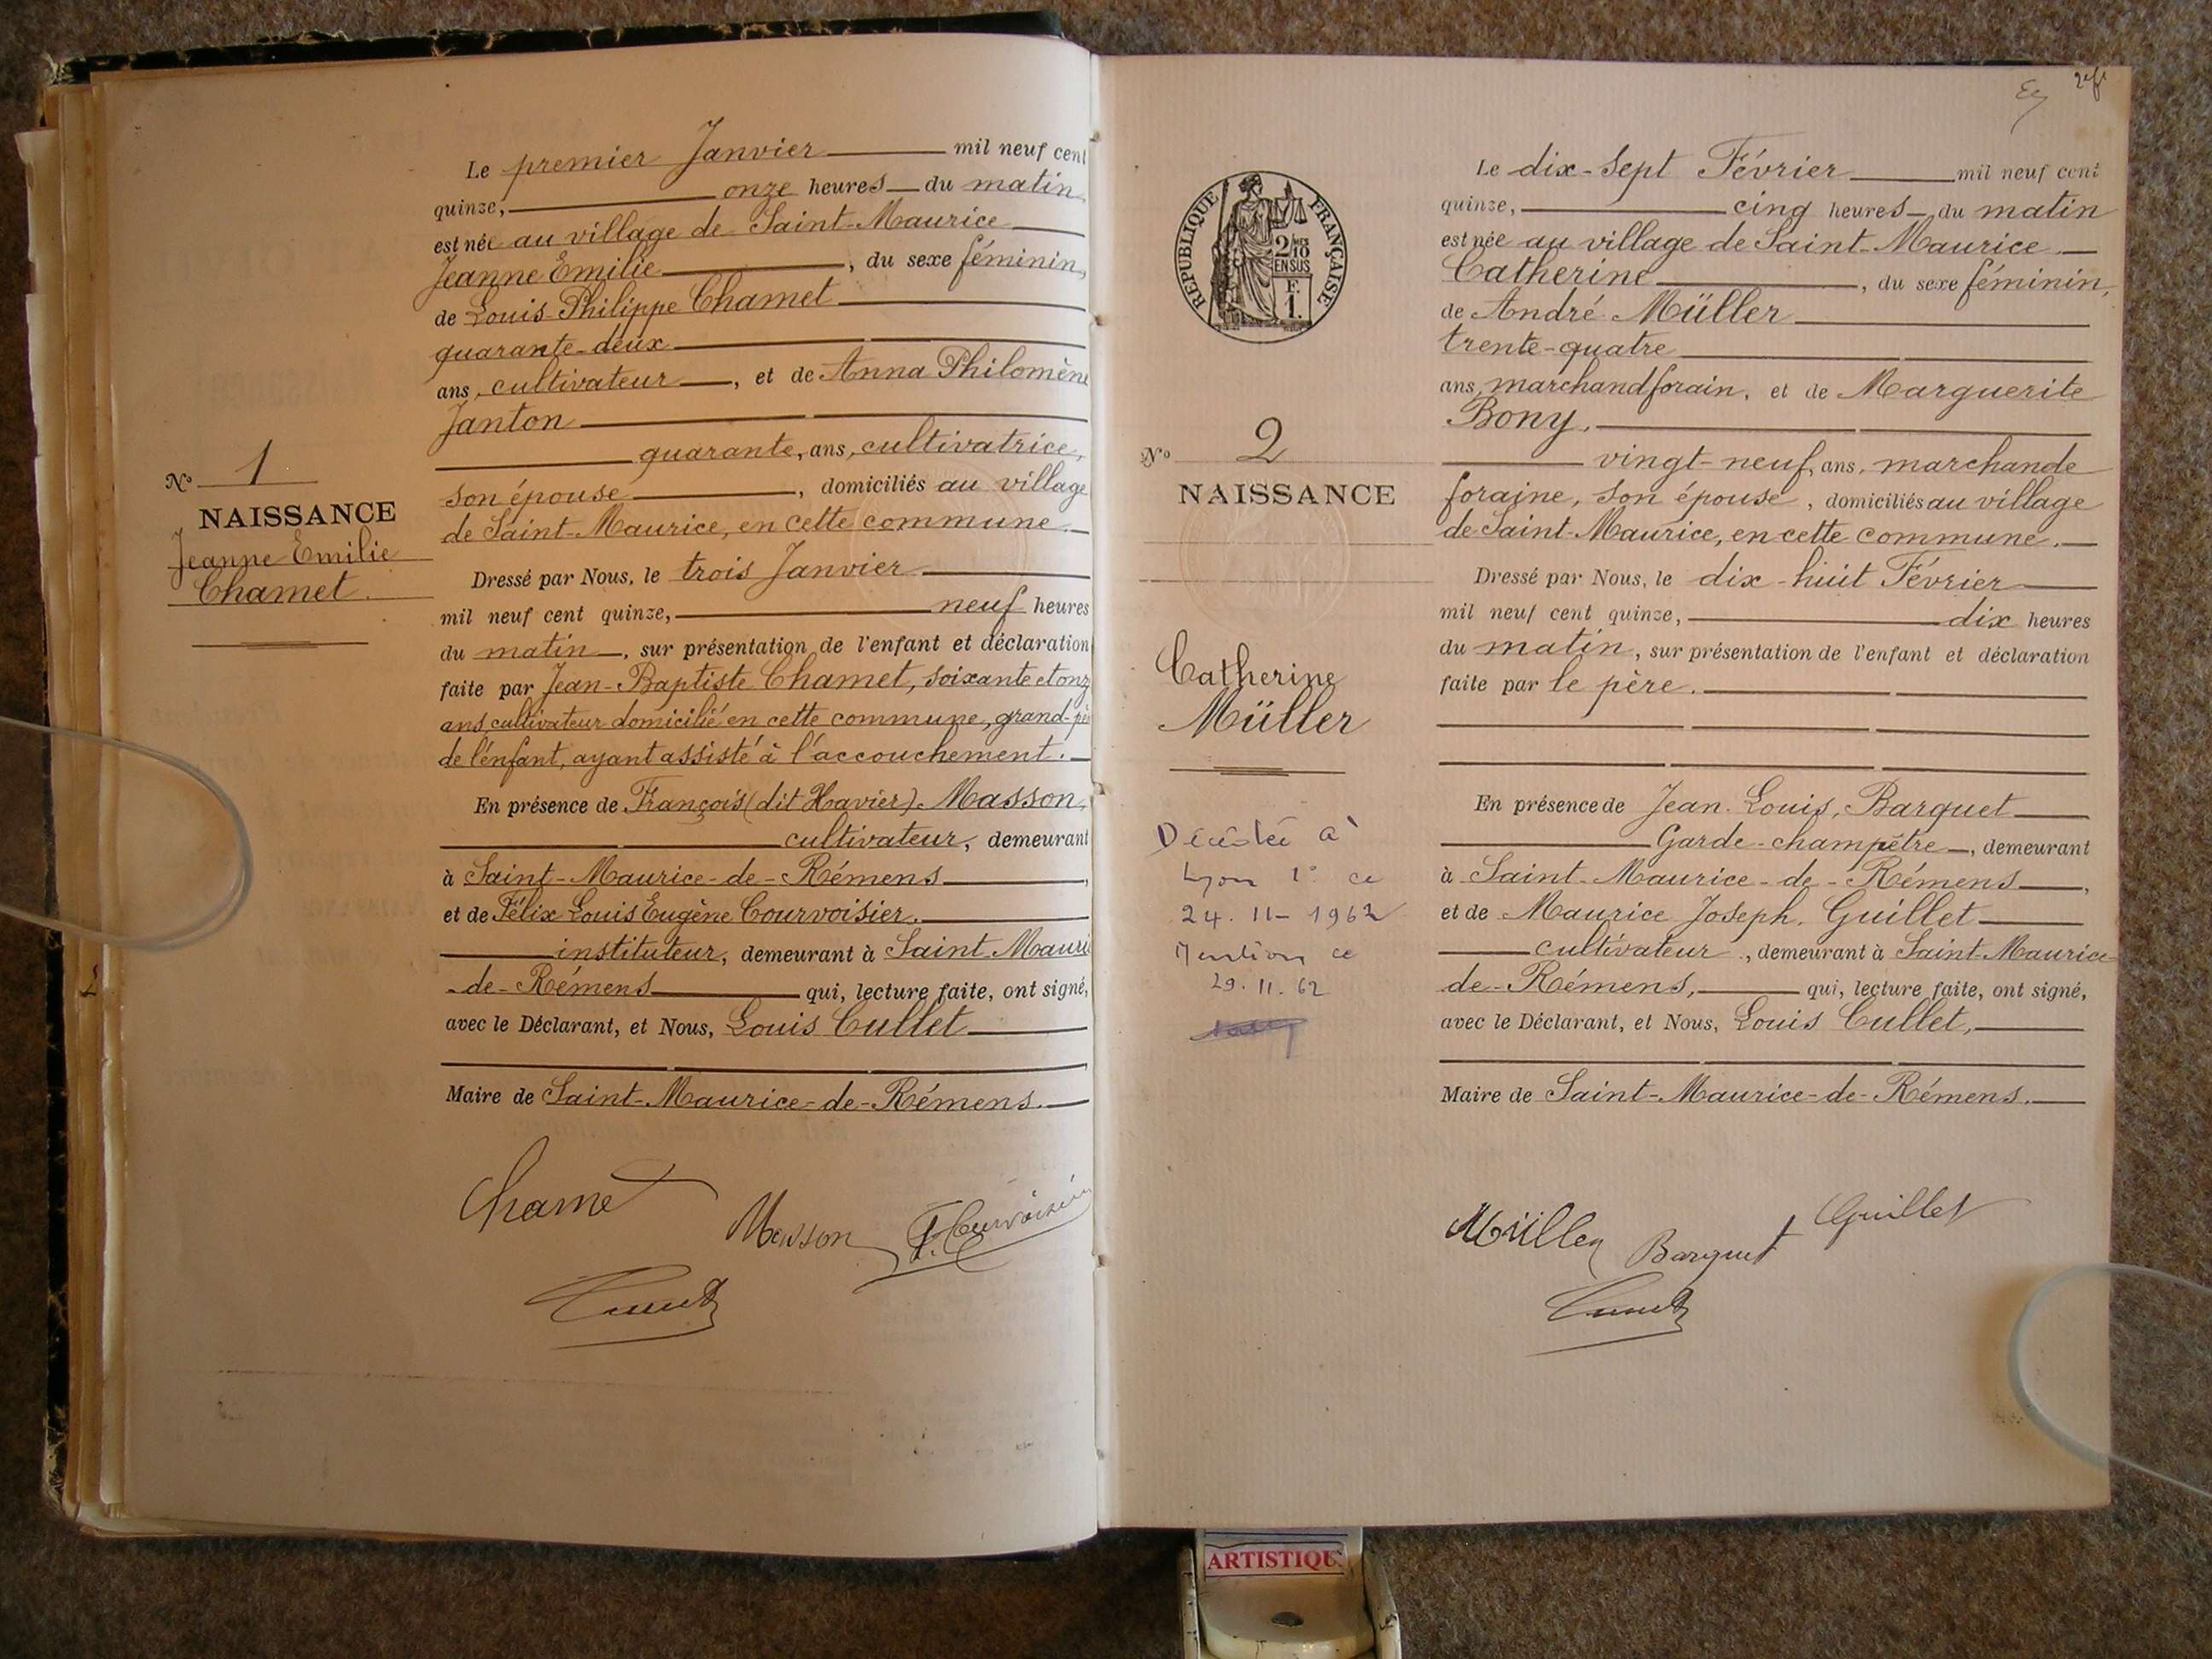 Le premier Janvier mil neuf cent
quinze, onze heures du matin,
est née au village de Saint-Maurice
Jeanne Emilie, du sexe féminin,
de Louis-Philippe Chamet
quarante-deux
ans, cultivateur, et de Anna Philomène
Janton
quarante, ans, cultivatrice,
son épouse, domiciliés au village
de Saint-Maurice, en cette commune.
Dressé par Nous, le trois Janvier
mil neuf cent quinze, neuf heures
du matin, sur présentation de l'enfant et déclaration
faite par Jean-Baptiste Chamet, soixante et onz
ans, cultivateur domicilié en cette commune, grand-pè
de l'enfant, ayant assisté à l'accouchement.
En présence de François (dit Xavier). Masson,
cultivateur, demeurant
à Saint-Maurice-de-Rémens,
et de Félix Louis Eugène Courvoisier.
instituteur, demeurant à Saint Mauri
-de-Rémens qui, lecture faite, ont signé,
avec le Déclarant, et Nous, Louis Cullet
Maire de Saint-Maurice-de-Rémens.
No 1
NAISSANCE
Jeanne Emilie
Chamet.
Chamet
Masson
F. Courvoisier
2
RÉPUBLIQUE FRANÇAISE
2/10
EN SUS
F.
1.
No 2
NAISSANCE
Catherine
Müller
Décédée à
Lyon 1° ce
24-11-1962
Mention ce
29.11.62
Le dix-sept Février mil neuf cent
quinze, cinq heures du matin
est née au village de Saint-Maurice
Catherine, du sexe féminin,
de André Müller
trente-quatre
ans, marchand forain, et de Marguerite
Bony,
vingt-neuf, ans, marchande
foraine, son épouse, domiciliés au village
de Saint-Maurice, en cette commune.
Dressé par Nous, le dix-huit Février
mil neuf cent quinze, dix heures
du matin, sur présentation de l'enfant et déclaration
faite par le père.
En présence de Jean-Louis, Barquet
Garde-champêtre, demeurant
à Saint-Maurice-de-Rémens,
et de Maurice Joseph. Guillet
cultivateur, demeurant à Saint-Maurice-
de-Rémens, qui, lecture faite, ont signé,
avec le Déclarant, et Nous, Louis Cullet,
Maire de Saint-Maurice-de-Rémens.
Müller
Barquet
Guillet
ARTISTIQU